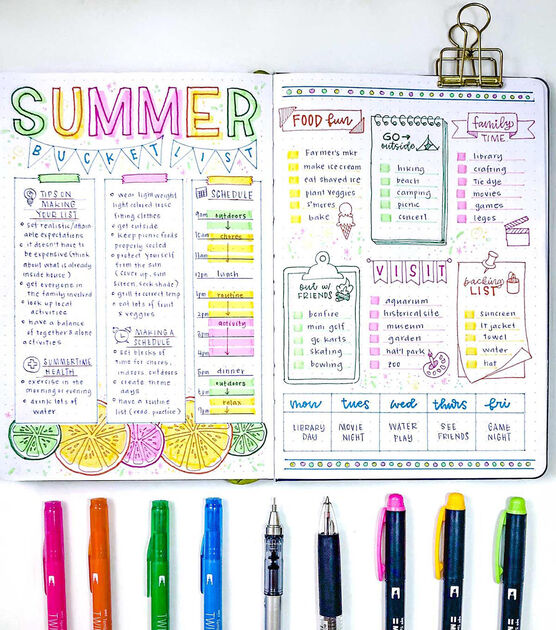 SUMMER
BUCKET LIST
TIPS ON
MAKING
YOUR LIST
set realistic/attain
able expectations
it doesn't have to
be expensive (think
about what is already
inside house)
get everyone in
the family involved
look up local
activities
have a balance
of together & alone
activities
SUMMERTIME
HEALTH
exercise in the
morning or evening
drink lots of
water
wear lightweight
light colored loose
fitting clothes
get outside
keep picnic foods
properly cooled
protect yourself
from the sun
(cover up, sun
screen, seek shade)
grill to correct temp
eat lots of fruit
& veggies
MAKING A
SCHEDULE
set blocks of
time for chores,
indoors, outdoors
create theme
days
have a routine
list (read, practice)
SCHEDULE
9am outdoors
10am chores
11am
12pm lunch
1pm routine
2pm activity
3pm
4pm
5pm dinner
outdoors
relax
FOOD fun
Farmer's mkt
make ice cream
eat shaved ice
plant veggies
s'mores
bake
GO →
outside
hiking
beach
camping
picnic
concert
family
TIME
library
crafting
Tie dye
movies
games
legos
out w/
FRIENDS
bonfire
mini golf
go karts
skating
bowling
VISIT
aquarium
historical site
museum
garden
nat'l park
zoo
packing
LIST
sunscreen
lt jacket
towel
water
hat
mon tues wed thurs fri
LIBRARY DAY
MOVIE NIGHT
WATER PLAY
SEE FRIENDS
GAME NIGHT